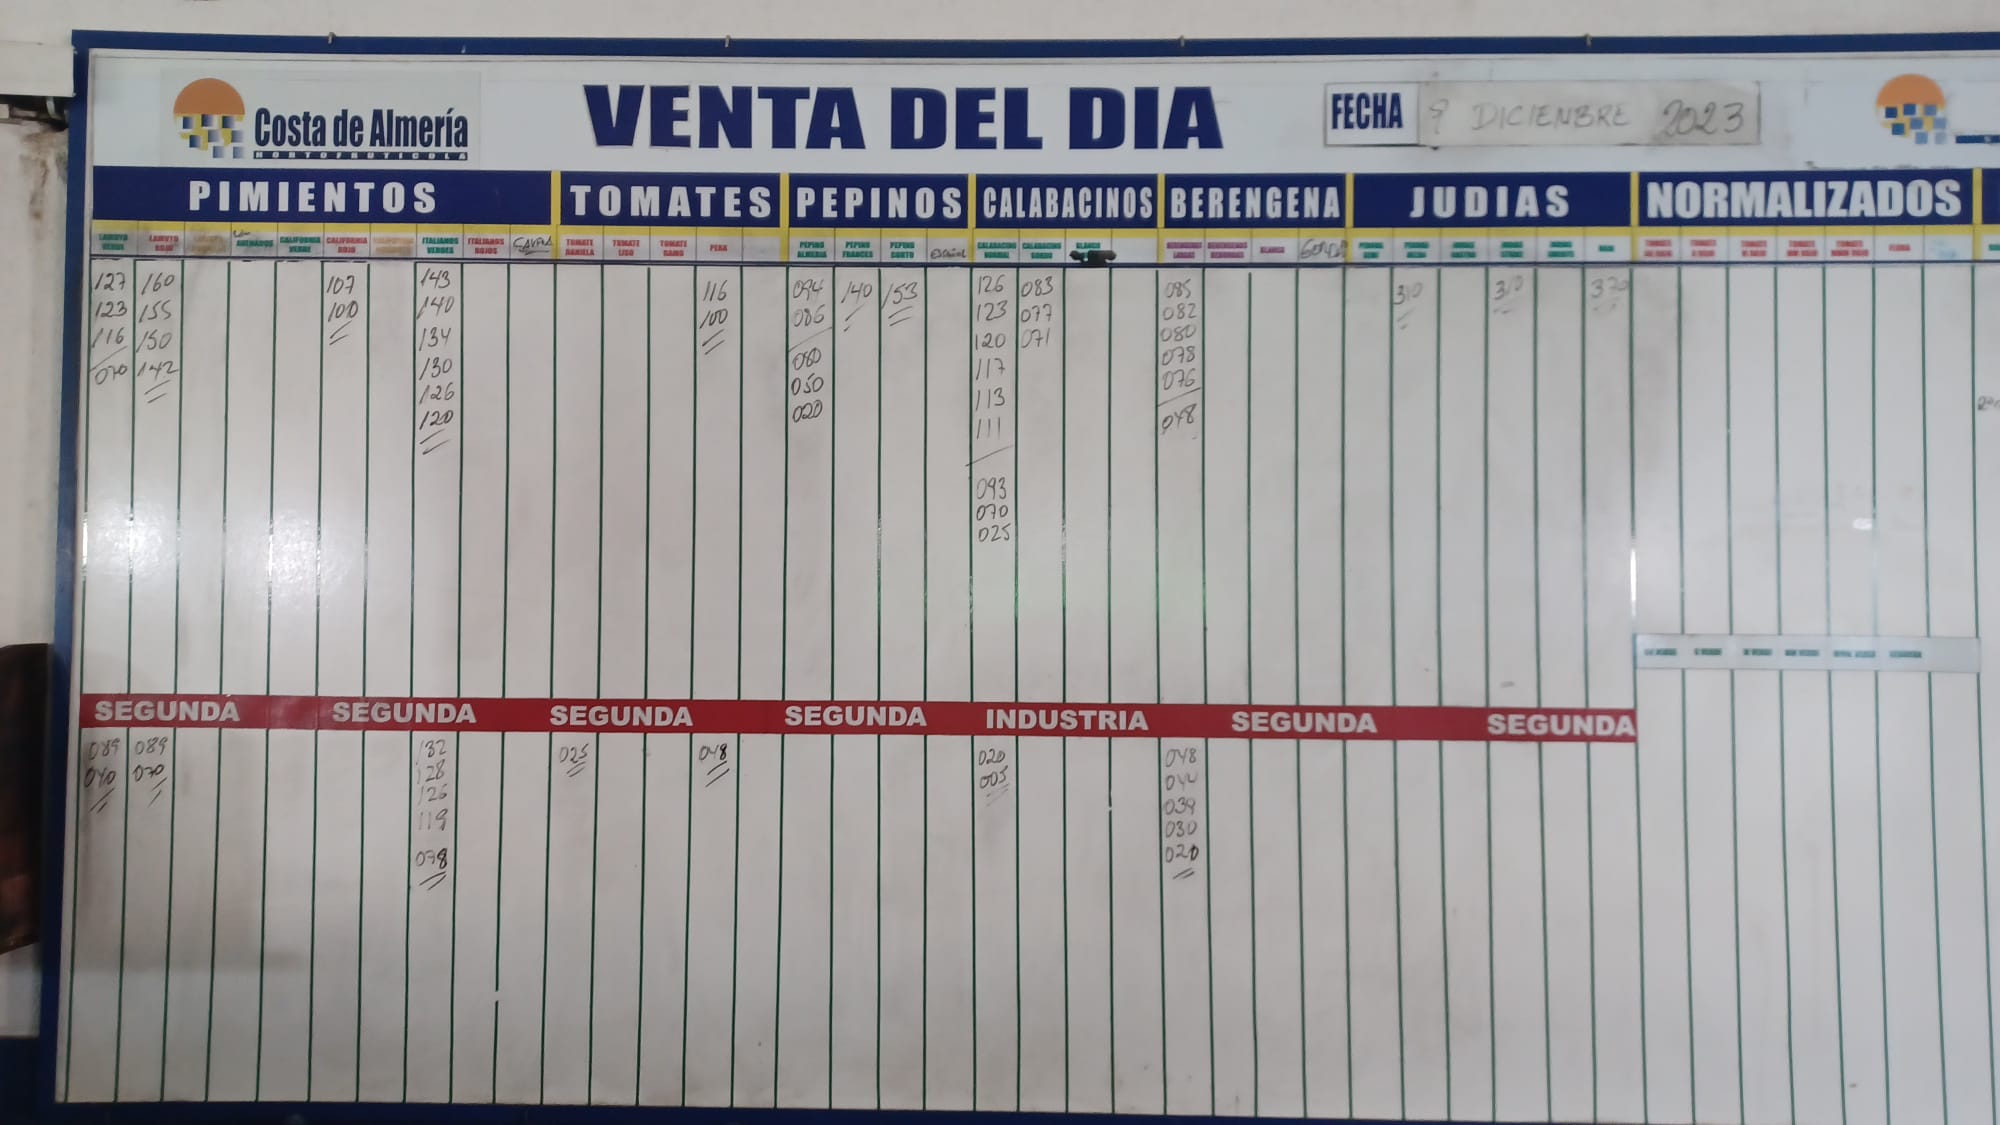 Costa de Almería
HORTOFRUTICOLA
VENTA DEL DIA
FECHA 9 DICIEMBRE 2023
PIMIENTOS TOMATES PEPINOS CALABACINOS BERENGENA JUDIAS NORMALIZADOS
LAMUYO VERDE
LAMUYO ROJO
CALIFORNIA VERDE
CALIFORNIA ROJO
ITALIANOS VERDES
ITALIANOS ROJOS
TOMATE DANIELA
TOMATE LISO
TOMATE RAMO
PERA
PEPINO ALMERIA
PEPINO FRANCES
PEPINO CORTO
ESPAÑOL
CALABACINO NORMAL
CALABACINO GORDO
BLANCO
BERENGENAS LARGAS
BERENGENAS REDONDAS
BLANCA
GORDA
127 160 107 143 116 094 140 153 126 083 085 310 310 370
123 155 100 140 100 086 123 077 082
116 150 134 120 071 080
070 142 130 080 117 078
126 050 113 076
120 020 111 048
093
070
025
SEGUNDA SEGUNDA SEGUNDA SEGUNDA INDUSTRIA SEGUNDA SEGUNDA
089 089 132 025 048 020 048
040 070 128 005 044
126 039
119 030
078 020